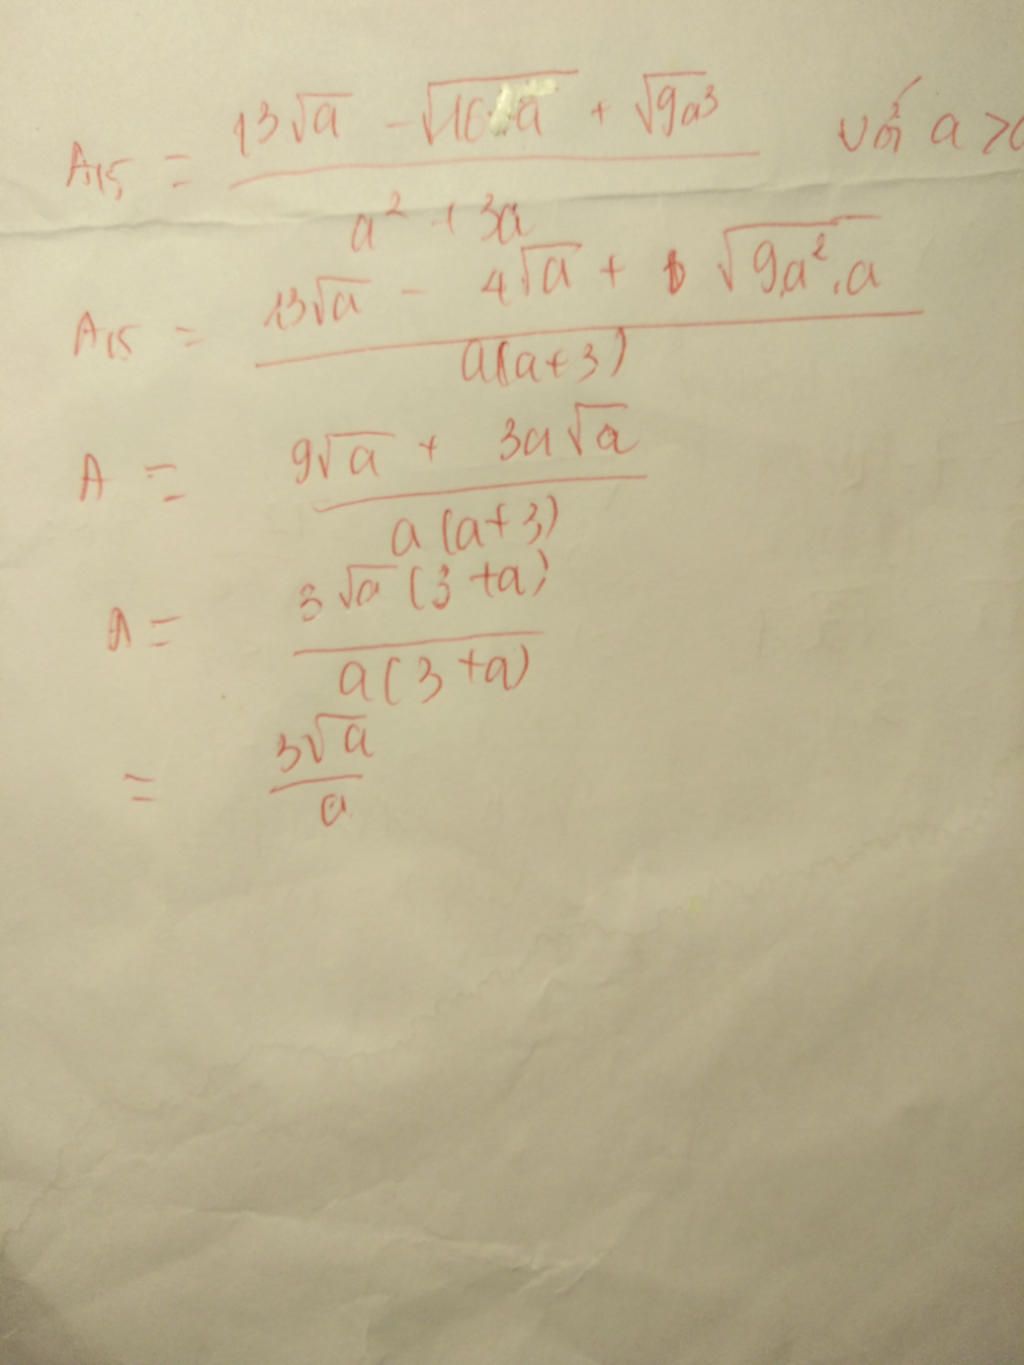 A₁₅ = (13√a - √(16a) + √(9a³)) / (a² + 3a) với a >0
A₁₅ = (13√a - 4√a + √(9a².a)) / (a(a+3))
A = (9√a + 3a√a) / (a(a+3))
A = (3√a(3+a)) / (a(3+a))
= (3√a) / a